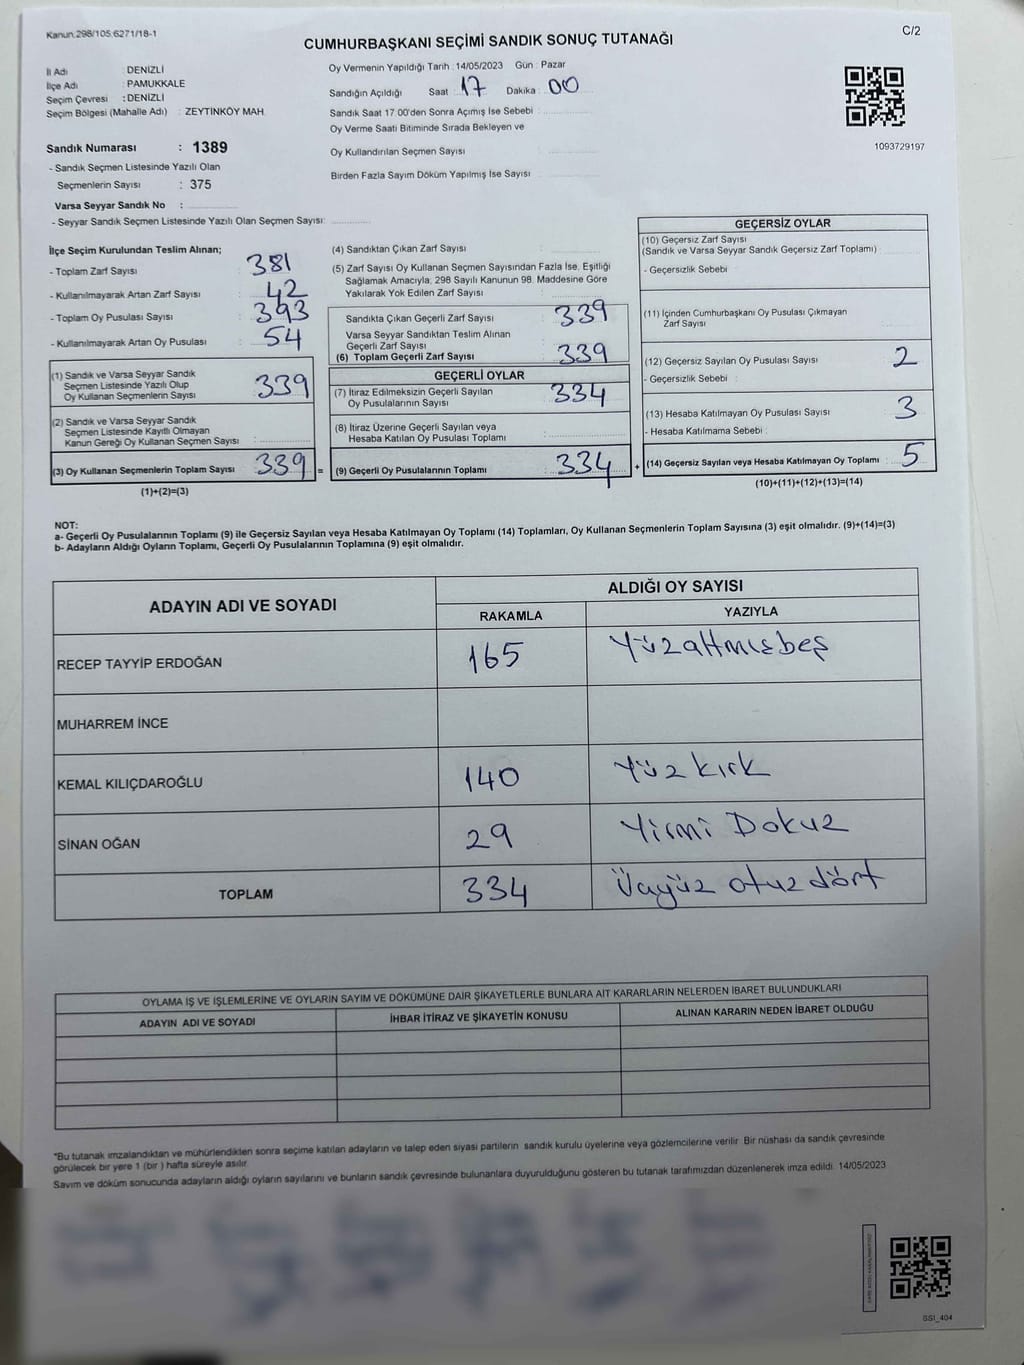 Kanun:298/105;6271/18-1
C/2
CUMHURBAŞKANI SEÇİMİ SANDIK SONUÇ TUTANAĞI
İl Adı : DENİZLİ
İlçe Adı : PAMUKKALE
Seçim Çevresi : DENİZLİ
Seçim Bölgesi (Mahalle Adı) : ZEYTİNKÖY MAH.
Oy Vermenin Yapıldığı Tarih :14/05/2023 Gün : Pazar
Sandığın Açıldığı Saat : 17 Dakika : 00
Sandık Saat 17:00'den Sonra Açımış İse Sebebi :
Oy Verme Saati Bitiminde Sırada Bekleyen ve
Oy Kullandırılan Seçmen Sayısı
Birden Fazla Sayım Döküm Yapılmış İse Sayısı
1093729197
Sandık Numarası : 1389
- Sandık Seçmen Listesinde Yazılı Olan
Seçmenlerin Sayısı : 375
Varsa Seyyar Sandık No :
- Seyyar Sandık Seçmen Listesinde Yazılı Olan Seçmen Sayısı:
İlçe Seçim Kurulundan Teslim Alınan;
- Toplam Zarf Sayısı : 381
- Kullanılmayarak Artan Zarf Sayısı : 42
- Toplam Oy Pusulası Sayısı : 393
- Kullanılmayarak Artan Oy Pusulası : 54
(1) Sandık ve Varsa Seyyar Sandık
Seçmen Listesinde Yazılı Olup
Oy Kullanan Seçmenlerin Sayısı : 339
(2) Sandık ve Varsa Seyyar Sandık
Seçmen Listesinde Kayıtlı Olmayan
Kanun Gereği Oy Kullanan Seçmen Sayısı :
(3) Oy Kullanan Seçmenlerin Toplam Sayısı : 339 =
(1)+(2)=(3)
(4) Sandıktan Çıkan Zarf Sayısı :
(5) Zarf Sayısı Oy Kullanan Seçmen Sayısından Fazla İse, Eşitliği
Sağlamak Amacıyla; 298 Sayılı Kanunun 98. Maddesine Göre
Yakılarak Yok Edilen Zarf Sayısı :
Sandıkta Çıkan Geçerli Zarf Sayısı : 339
Varsa Seyyar Sandıktan Teslim Alınan
Geçerli Zarf Sayısı :
(6) Toplam Geçerli Zarf Sayısı : 339
GEÇERLİ OYLAR
(7) İtiraz Edilmeksizin Geçerli Sayılan
Oy Pusulalarının Sayısı : 334
(8) İtiraz Üzerine Geçerli Sayılan veya
Hesaba Katılan Oy Pusulası Toplamı :
(9) Geçerli Oy Pusulalarının Toplamı : 334 +
GEÇERSİZ OYLAR
(10) Geçersiz Zarf Sayısı
(Sandık ve Varsa Seyyar Sandık Geçersiz Zarf Toplamı) :
- Geçersizlik Sebebi :
(11) İçinden Cumhurbaşkanı Oy Pusulası Çıkmayan
Zarf Sayısı :
(12) Geçersiz Sayılan Oy Pusulası Sayısı : 2
- Geçersizlik Sebebi :
(13) Hesaba Katılmayan Oy Pusulası Sayısı : 3
- Hesaba Katılmama Sebebi :
(14) Geçersiz Sayılan veya Hesaba Katılmayan Oy Toplamı : 5
(10)+(11)+(12)+(13)=(14)
NOT:
a- Geçerli Oy Pusulalarının Toplamı (9) ile Geçersiz Sayılan veya Hesaba Katılmayan Oy Toplamı (14) Toplamları, Oy Kullanan Seçmenlerin Toplam Sayısına (3) eşit olmalıdır. (9)+(14)=(3)
b- Adayların Aldığı Oyların Toplamı, Geçerli Oy Pusulalarının Toplamına (9) eşit olmalıdır.
ADAYIN ADI VE SOYADI
ALDIĞI OY SAYISI
RAKAMLA YAZIYLA
RECEP TAYYİP ERDOĞAN 165 Yüzaltmışbeş
MUHARREM İNCE
KEMAL KILIÇDAROĞLU 140 Yüz kırk
SİNAN OĞAN 29 Yirmi Dokuz
TOPLAM 334 Üçyüz otuz dört
OYLAMA İŞ VE İŞLEMLERİNE VE OYLARIN SAYIM VE DÖKÜMÜNE DAİR ŞİKAYETLERLE BUNLARA AİT KARARLARIN NELERDEN İBARET BULUNDUKLARI
ADAYIN ADI VE SOYADI İHBAR İTİRAZ VE ŞİKAYETİN KONUSU ALINAN KARARIN NEDEN İBARET OLDUĞU
*Bu tutanak imzalandıktan ve mühürlendikten sonra seçime katılan adayların ve talep eden siyasi partilerin sandık kurulu üyelerine veya gözlemcilerine verilir. Bir nüshası da sandık çevresinde
görülecek bir yere 1 (bir ) hafta süreyle asılır.
Sayım ve döküm sonucunda adayların aldığı oyların sayılarını ve bunların sandık çevresinde bulunanlara duyurulduğunu gösteren bu tutanak tarafımızdan düzenlenerek imza edildi. 14/05/2023
SSI_404